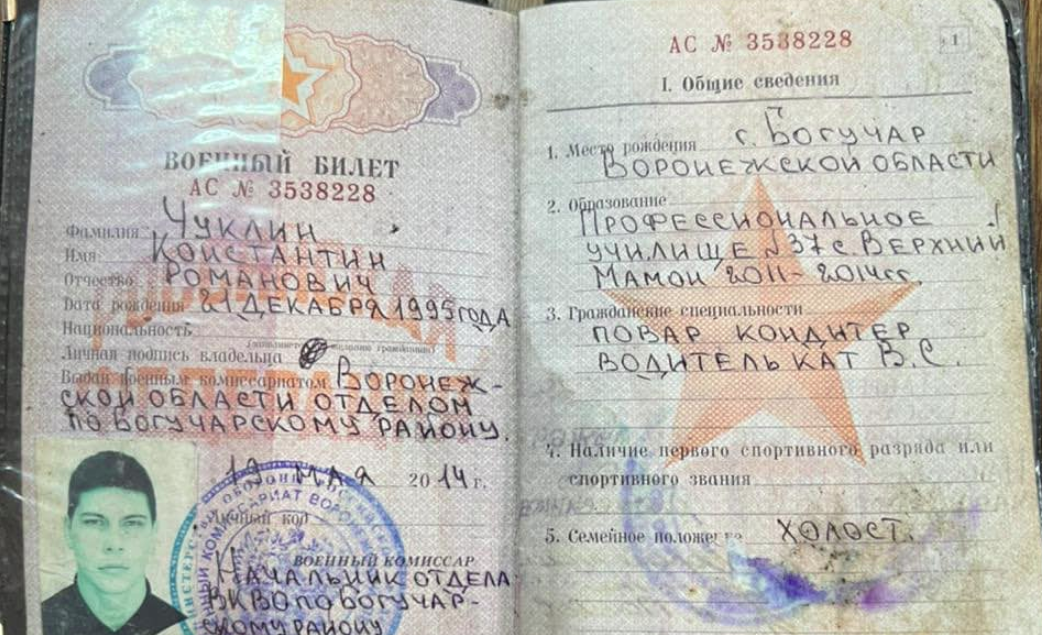 ВОЕННЫЙ БИЛЕТ
АС № 3538228
Фамилия ЧУКЛИН
Имя КОНСТАНТИН
Отчество РОМАНОВИЧ
Дата рождения 21 ДЕКАБРЯ 1995 ГОДА
Национальность
Личная подпись владельца
Выдан военным комиссариатом ВОРОНЕЖ-
СКОЙ ОБЛАСТИ ОТДЕЛОМ
ПО БОГУЧАРСКОМУ РАЙОНУ.
19 МАЯ 2014 г.
Личный код
ВОЕННЫЙ КОМИССАР
НАЧАЛЬНИК ОТДЕЛА
ВКВО ПО БОГУЧАР-
СКОМУ РАЙОНУ
АС № 3538228
1
I. Общие сведения
1. Место рождения г. БОГУЧАР
ВОРОНЕЖСКОЙ ОБЛАСТИ
2. Образование
ПРОФЕССИОНАЛЬНОЕ
УЧИЛИЩЕ №37 с. ВЕРХНИЙ
МАМОН 2011-2014гг.
3. Гражданские специальности
ПОВАР КОНДИТЕР
ВОДИТЕЛЬ КАТ В.С.
4. Наличие первого спортивного разряда или
спортивного звания
5. Семейное положение ХОЛОСТ.